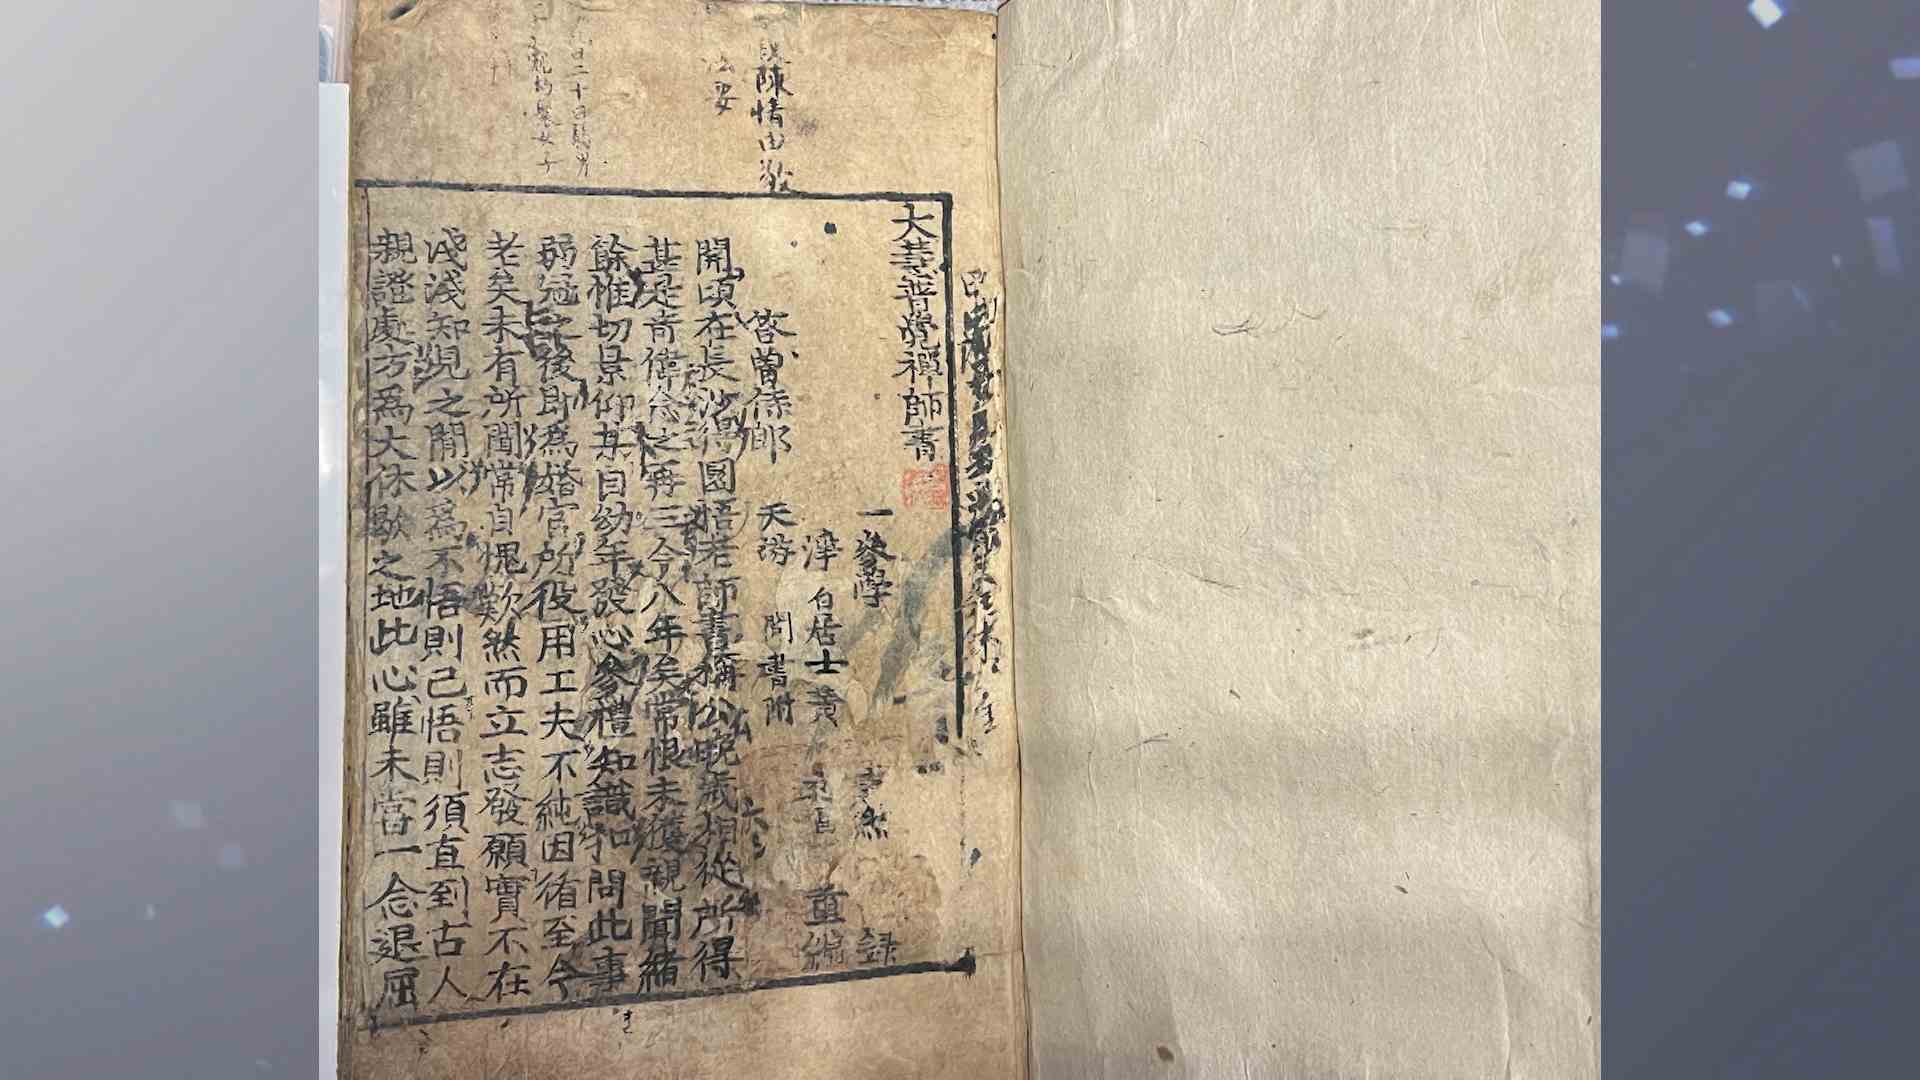 陳情由
大慧普覺禪師書
一參學 然 錄
淨 居士黃 重編
答曾侍郎 天游 問書附
開頃在長沙得圜悟老師書稱公晚歲相從所得
甚是奇偉念之再三今八年矣常恨未獲親聞緒
餘惟切景仰某自幼年發心參禮知識扣問此事
弱冠之後即爲婚宦所役用工夫不純因循至今
老矣未有所聞常自愧歎然而立志發願實不在
淺淺知見之間以爲不悟則已悟則須直到古人
親證處方爲大休歇之地此心雖未嘗一念退屈